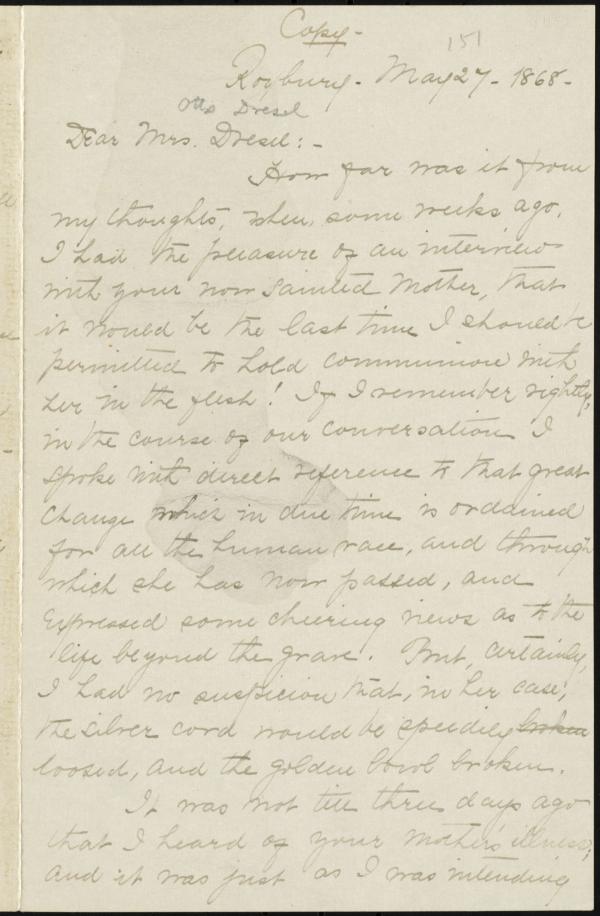 Copy-
151
Roxbury- May 27- 1868-
Otto Dresel
Dear Mrs. Dresel:-
How far was it from
my thoughts, when, some weeks ago,
I had the pleasure of an interview
with your now sainted Mother, that
it would be the last time I should be
permitted to hold communion with
her in the flesh! If I remember rightly,
in the course of our conversation I
spoke with direct reference to that great
change which in due time is ordained
for all the human race, and through
which she has now passed, and
expressed some cheering views as to the
life beyond the grave. But, certainly,
I had no suspicion that, in her case,
the silver cord would be speedily broken
loosed, and the golden bowl broken.
It was not till three days ago
that I heard of your mother's illness;
and it was just as I was intending